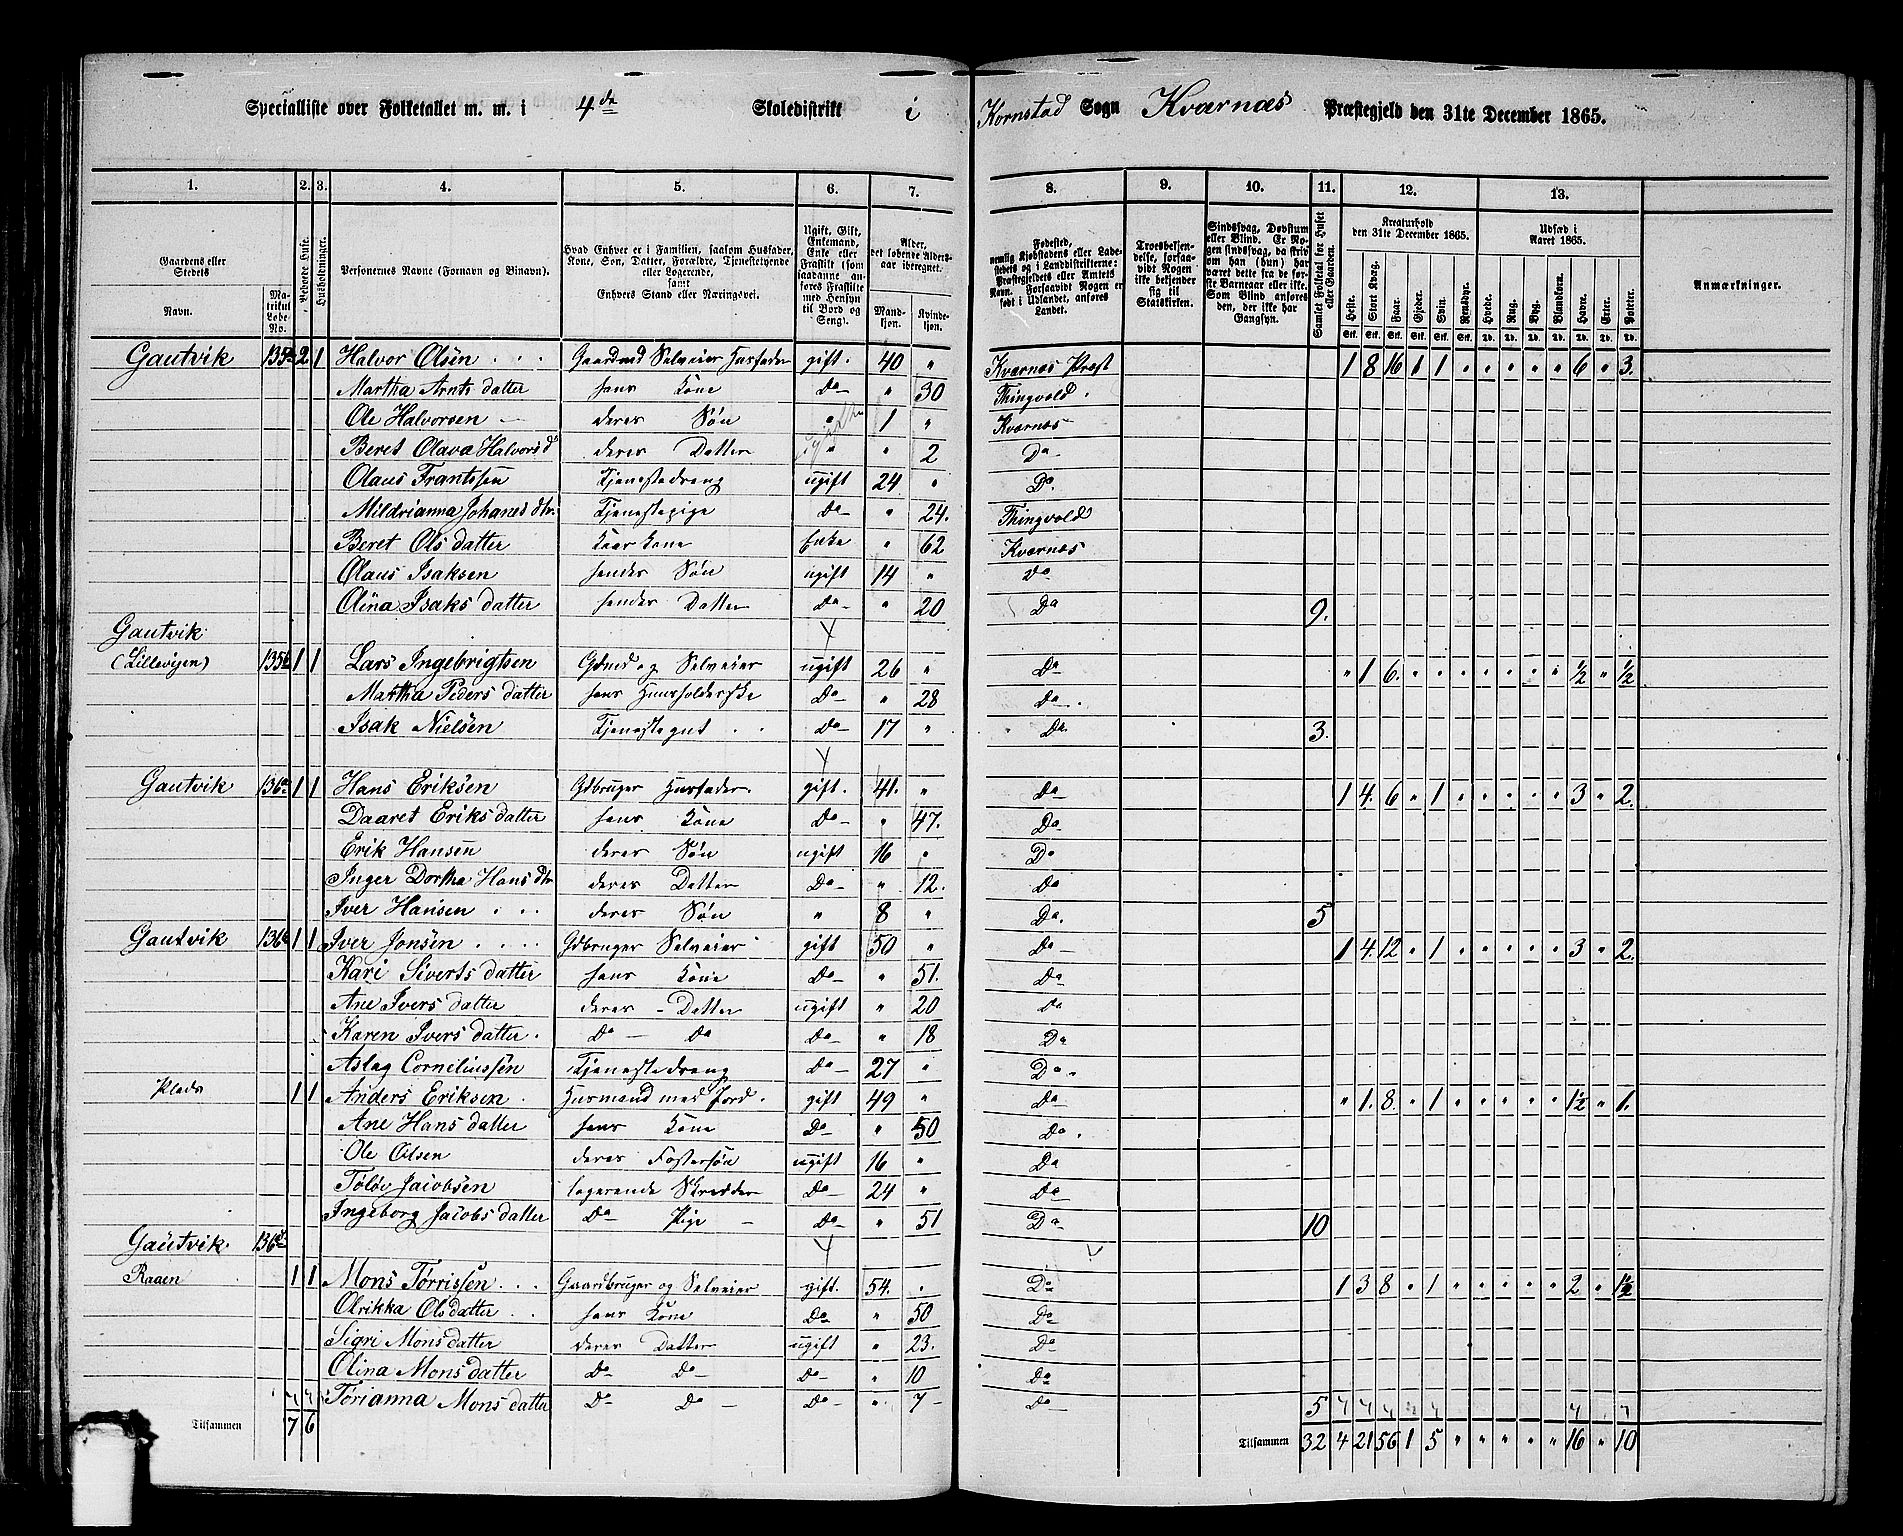 Specialliste over Folketallet m. m. i 4de Skoledistrikt i Kornstad Sogn Kværnæs Præstegjeld den 31te December 1865.
1. 2. 3. 4. 5. 6. 7. 8. 9. 10. 11. 12. 13.
Gaardens eller Stedets Navn. Matrikul Løbe-No. Beboede Huse. Husholdninger. Personernes Navne (Fornavn og Binavn). Hvad Enhver er i Familien, saasom Husfader, Kone, Søn, Datter, Forældre, Tjenestetyende eller Logerende, samt Enhvers Stand eller Næringsvei. Ugift, Gift, Enkemand, Enke eller Fraskilt (som saadanne anføres Fraskilte med Hensyn til Bord og Seng). Alder, det løbende Alders-aar iberegnet. Mandkjøn. Kvindekjøn. Fødested, nemlig Kjøbstadens eller Ladestedets og i Landdistrikterne: Præstegjeldets eller Amtets Navn. Forsaavidt Nogen er født i Udlandet, anføres Landet. Troesbekjendelse, forsaavidt Nogen ikke bekjender sig til Statskirken. Sindssvag, Døvstum eller Blind. Er Nogen sindssvag, da skriv om han (hun) har været dette fra de første Barneaar eller ikke. Som Blind anføres den, der ikke har Gangsyn. Samlet Folketal for Huset eller Gaarden. Kreaturhold den 31te December 1865. Heste. Stort Kvæg. Faar. Gjeder. Svin. Rensdyr. Udsæd i Aaret 1865. Hvede. Rug. Byg. Blandkorn. Havre. Erter. Poteter. Anmærkninger.
Gautvik 135a 2 1 Halvor Olsen Gaardmd Selveier Husfader gift. 40 " Kværnæs Præst 1 8 16 1 1 " " " " " 6 " 3.
Martha Arnts datter hans Kone Do " 30 Thingvold.
Ole Halvorsen deres Søn " 1 " Kværnæs
Beret Olava Halvorsd deres Datter " " 2 Do
Olaus Frantssen Tjenestedreng ugift 24 " Do.
Mildrianna Johanesdtr. Tjenestepige Do " 24. Thingvold
Beret Ols datter Kaar Kone Enke " 62 Kværnæs
Olaus Isaksen hendes Søn ugift 14 " Do
Olina Isaks datter hendes Datter Do " 20 Do 9.
Gautvik
(Lillevigen) 135b 1 1 Lars Ingebrigtsen Gdmd og Selveier ugift 26 " Do " 1 6. " " " " " " " ½ " ½
Martha Peders datter hans Huusholderske Do " 28 Do.
Isak Nielsen Tjenestegut Do 17 " Do. 3.
Gautvik 136a 1 1 Hans Eriksen Gdbruger Husfader gift. 41. " Do 1 4. 6 " 1 " " " " " 3 " 2.
Daaret Eriks datter hans Kone Do " 47. Do
Erik Hansen deres Søn ugift 16 " Do
Inger Dortha Hans dtr deres Datter Do " 12. Do
Iver Hansen deres Søn " 8 " Do. 5
Gautvik 136 1 1 Iver Jonsen Gdbruger Selveier gift 50 " Do 1 4. 12 " 1 " " " " " 3 " 2.
Kari Siverts datter hans Kone Do " 51. Do
Ane Ivers datter deres Datter ugift " 20 Do
Karen Ivers datter. Do Do Do " 18 Do
Aslag Corneliussen Tjenestedreng Do 27 " Do.
Plads 1 1 Anders Eriksen Husmand med Jord. gift 49 " Do " 1. 8. " 1 " " " " " 1½ " 1.
Ane Hans datter hans Kone Do " 50 Do.
Ole Olsen deres Fostersøn ugift 16 " Do
Toløv Jacobsen logerende Skredder Do 24 " Do
Ingeborg Jacobs datter Do Pige Do " 51 Do 10
Gautvik. 136
Raaen 1 1 Mons Tørrissen Gaardbruger og Selveier gift. 54. " Do 1 3 8 " 1 " " " " " 2 " 1½
Olrikka Olsdatter hans Kone Do " 50 Do
Sigri Monsdatter deres Datter ugift " 23. Do
Olina Mons datter Do Do Do " 10 Do
Torianna Mons datter Do Do Do " 7 Do 5
Tilsammen 7 6 Tilsammen 32 4 21 56 1 5 " " " " " 16 " 10